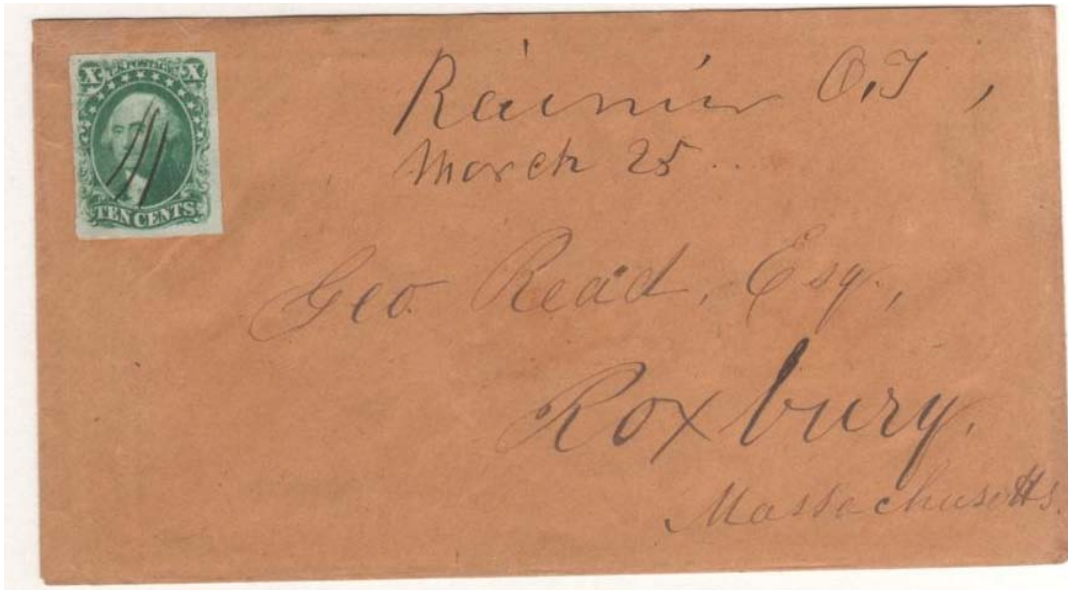 X U.S. POSTAGE X
TEN CENTS
Rainier O.T,
March 25..
Geo. Read, Esq.,
Roxbury.
Massachusetts.